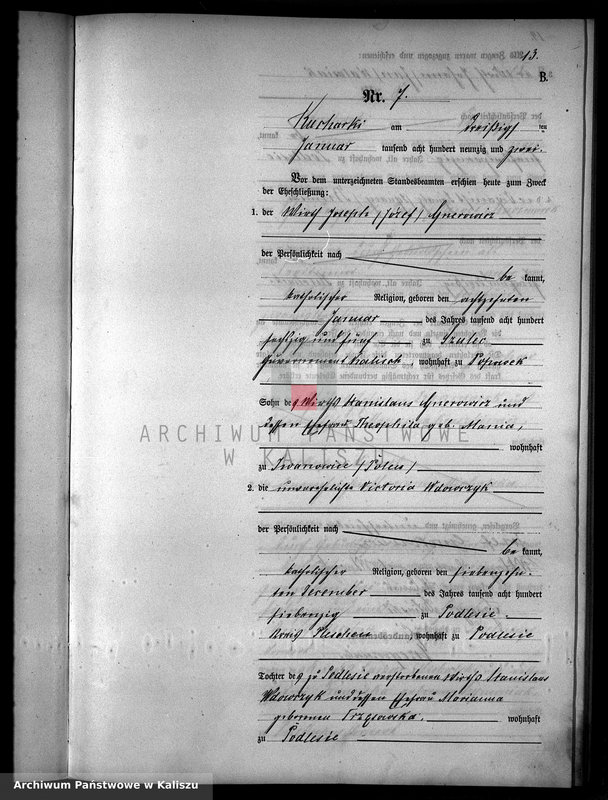 13.
B.
Nr. 7.
Kucharki am dreißigsten
Januar tausend acht hundert neunzig und zwei.
Vor dem unterzeichneten Standesbeamten erschien heute zum Zweck
der Eheschließung:
1. der Wirth Joseph /Józef/ Gnerowicz
der Persönlichkeit nach
be kannt,
katholischer Religion, geboren den achtzehnten
Januar des Jahres tausend acht hundert
sechzig und fünf zu Szulec
Guvernement Kalisch, wohnhaft zu Popowek
Sohn des Wirths Stanislaus Gnerowicz und
dessen Ehefrau Theophila geb. Mania,
wohnhaft
zu Iwanowice /Polen/
2. die unverehelichte Victoria Wdowczyk
der Persönlichkeit nach
be kannt,
katholischer Religion, geboren den siebenzehn-
ten December des Jahres tausend acht hundert
siebenzig zu Podlesie
Kreis Pleschen wohnhaft zu Podlesie
Tochter des zu Podlesie verstorbenen Wirths Stanislaus
Wdowczyk und dessen Ehefrau Marianna
geborenen
wohnhaft
zu Podlesie
ARCHIWUM PAŃSTWOWE
W KALISZU
Archiwum Państwowe w Kaliszu